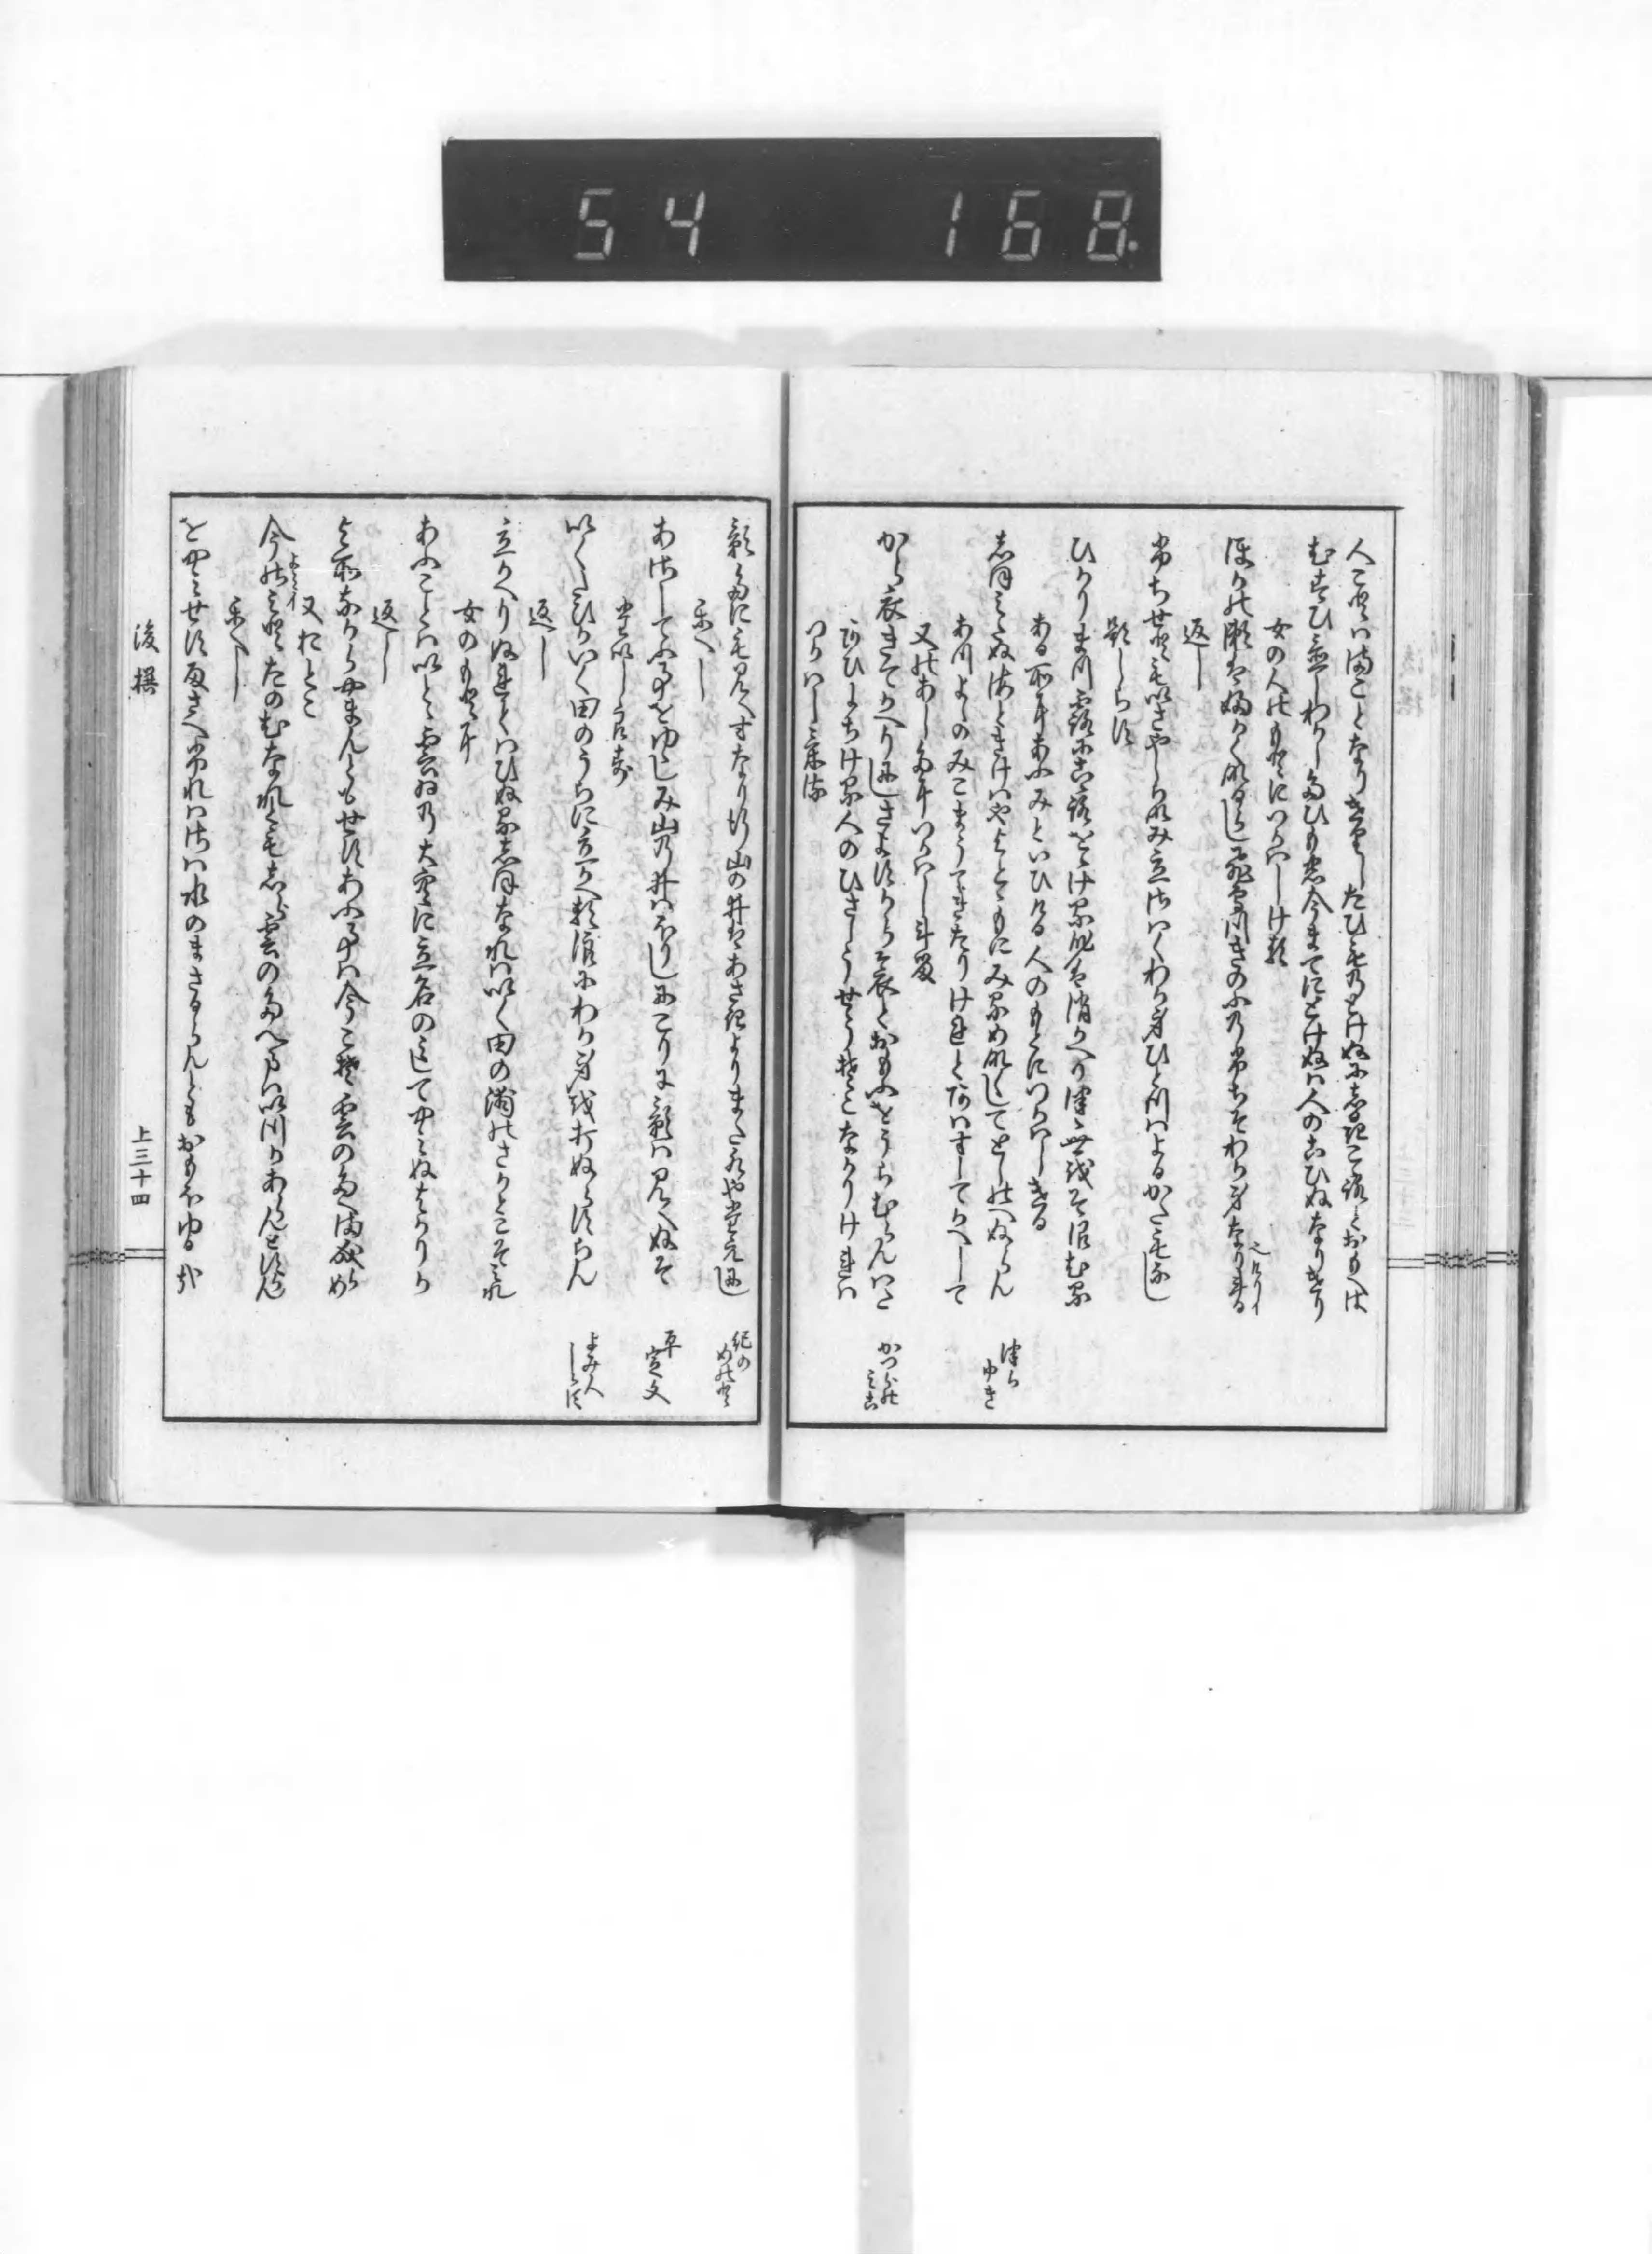 人ことはまことなりけりしたひものとけぬにしるきこゝろとおもへは
むすひ置しわかしたひもの今まてにとけぬは人のこひぬなりけり
女の人のもとにつかはしける
ほかのせはふかくなるらし飛鳥川きのふのふちそわか身なりける
返し
ふちせともいさやしらなみ立さはくわか身ひとつはよるかたもなし
題しらす
ひかりまつ露にこゝろをおける身は消かへりつゝ世をそ恨むる
ある所にあふみといひける人のもとにつかはしける
しほみたぬ海ときけはやよとゝもにみるめなくしてとしのへぬらん
つらゆき
あつよしのみこまうてきたりけれとあはすしてかへして
又のあしたにつかはしける
から衣きてかへりにしさよすからあはれとおもふをうらむらんはた
かつらのみこ
あひまちける人のひさしうせうそこなかりけれは
つかはしける
影たにも見えすなり行山の井はあさきよりまた水やたえにし
紀のめのと
かへし
あさしてふ事をゆゝしみ山の井はほりしにこりに影は見えぬそ
平定文
たいしらす
いくたひかいく田のうらに立かへる浪にわか身を打ぬらすらん
よみ人しらす
返し
立かへりぬれてはひぬるしほなれはいく田の浦のさかとこそみれ
女のもとに
あふことはいとゝ雲ゐの大空に立名のみしてやみぬはかりか
返し
よそなからやまんともせすあふ事は今こそ雲のたえまなるらめ
又おとこ
今のみとたのむなれとも白雲のたえまはいつかあらんとすらん
かへし
をやみせす雨さへふれはさは水のまさるらんともおもほゆる哉
後撰
上三十四
54 168